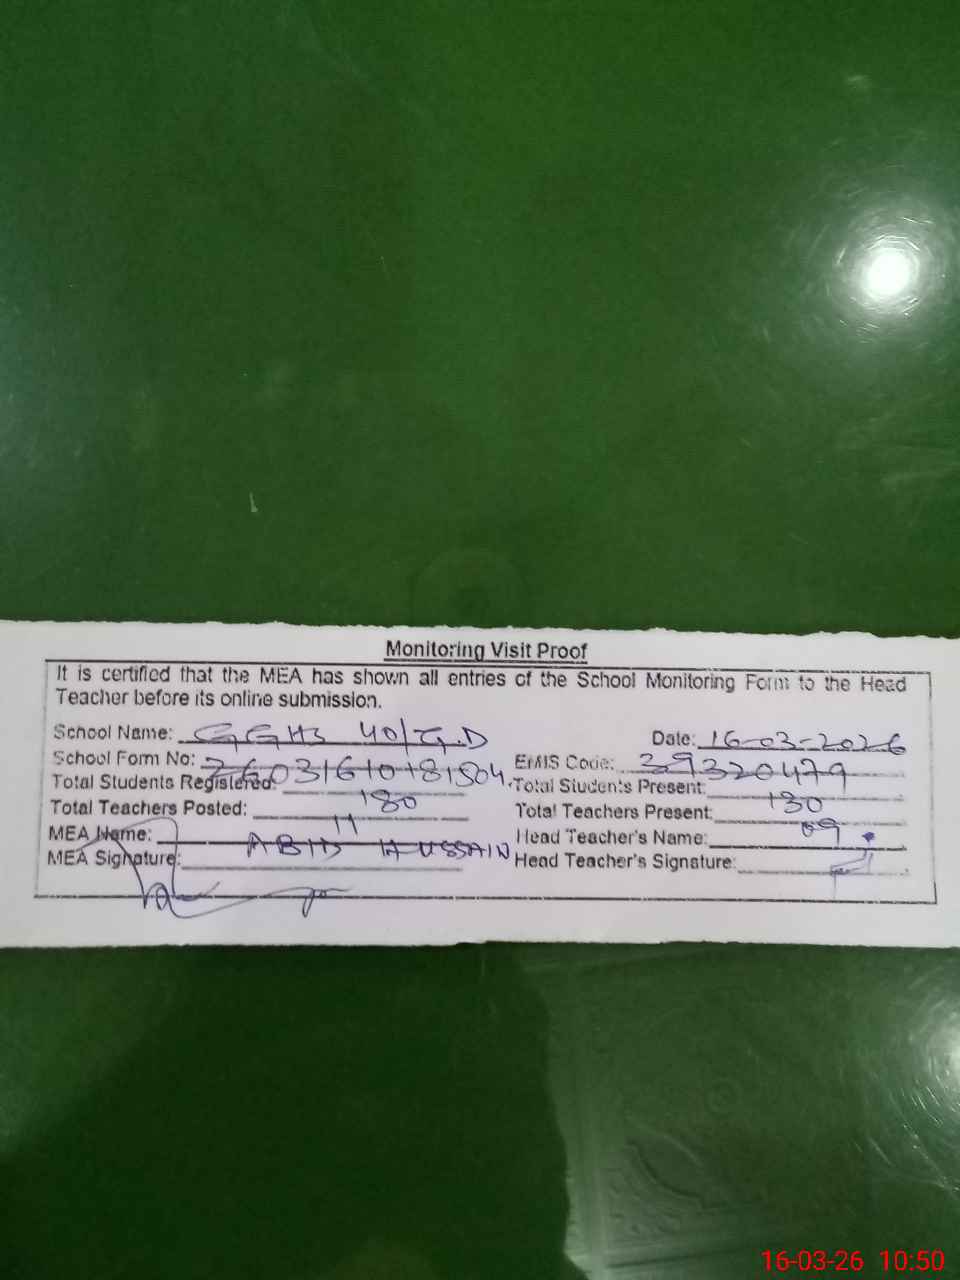 Monitoring Visit Proof
It is certified that the MEA has shown all entries of the School Monitoring Form to the Head
Teacher before its online submission.
School Name: GGHS 40/G.D Date: 16-03-2026
School Form No: 26031610181504 EMIS Code: 39320479
Total Students Registered: 180 Total Students Present: 130
Total Teachers Posted: 11 Total Teachers Present: 09
MEA Name: ABID HUSSAIN Head Teacher's Name:
MEA Signature: Head Teacher's Signature:
16-03-26 10:50